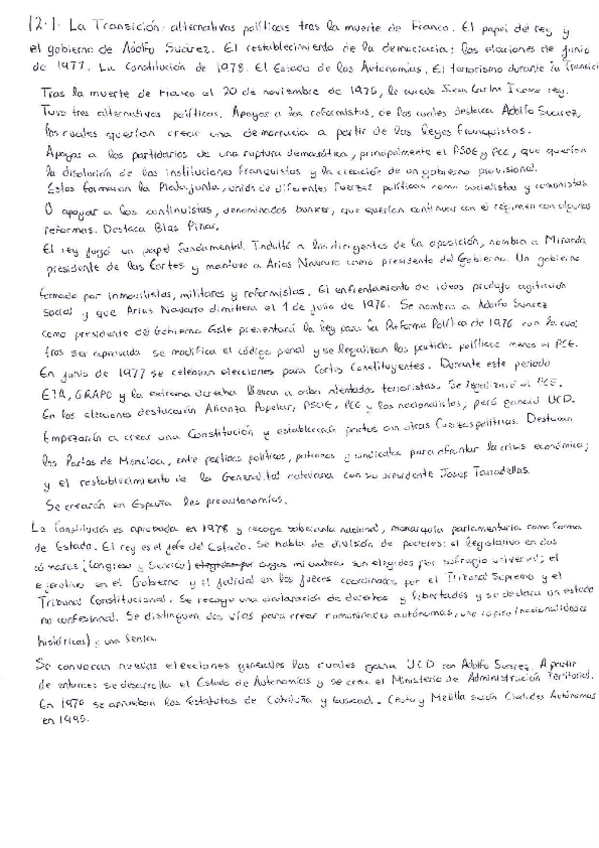 12.1. La Transición: alternativas políticas tras la muerte de Franco. El papel del rey y
el gobierno de Adolfo Suárez. El restablecimiento de la democracia: las elecciones de junio
de 1977. La Constitución de 1978. El Estado de las Autonomías. El terrorismo durante la Transici
Tras la muerte de Franco el 20 de noviembre de 1975, le sucede Juan Carlos I como rey.
Tuvo tres alternativas políticas. Apoyar a los reformistas, de los cuales destaca Adolfo Suárez,
los cuales querían crear una democracia a partir de las leyes franquistas.
Apoyar a los partidarios de una ruptura democrática, principalmente el PSOE y PCE, que querían
la disolución de las instituciones franquistas y la creación de un gobierno provisional.
Estos formaron la Platajunta, unión de diferentes fuerzas políticas como socialistas y comunistas.
O apoyar a los continuistas, denominados bunker, que querían continuar con el régimen con algunas
reformas. Destaca Blas Piñar.
El rey jugó un papel fundamental. Indultó a los dirigentes de la oposición, nombra a Miranda
presidente de las Cortes y mantuvo a Arias Navarro como presidente del Gobierno. Un gobierno
formado por inmovilistas, militares y reformistas. El enfrentamiento de ideas produjo agitación
social y que Arias Navarro dimitiera el 1 de julio de 1976. Se nombra a Adolfo Suárez
como presidente del Gobierno. Este presentará la Ley para la Reforma Política de 1976 con la cual
tras ser aprobada se modifica el código penal y se legalizan los partidos políticos menos el PCE.
En junio de 1977 se celebran elecciones para Cortes Constituyentes. Durante este periodo
ETA, GRAPO y la extrema derecha llevan a cabo atentados terroristas. Se legalizará el PCE.
En las elecciones destacarán Alianza Popular, PSOE, PCE y los nacionalistas; pero ganará UCD.
Empezarán a crear una Constitución y establecerán pactos con otras fuerzas políticas. Destacan
los Pactos de Moncloa, entre partidos políticos, patronos y sindicatos para afrontar la crisis económica;
y el restablecimiento de la Generalitat catalana con su presidente Josep Tarradellas.
Se crearán en España las preautonomías.
La Constitución es aprobada en 1978 y recoge soberanía nacional, monarquía parlamentaria como forma
de Estado. El rey es el jefe del Estado. Se habla de división de poderes: el legislativo en dos
cámaras (Congreso y Senado) cuyos miembros son elegidos por sufragio universal; el
ejecutivo en el Gobierno y el judicial en los jueces coordinados por el Tribunal Supremo y el
Tribunal Constitucional. Se recoge una declaración de derechos y libertades y se declara un estado
no confesional. Se distinguen dos vías para crear comunidades autónomas, una rápida (nacionalidades
históricas) y una lenta.
Se convocan nuevas elecciones generales las cuales gana UCD con Adolfo Suárez. A partir
de entonces se desarrolla el Estado de Autonomías y se crea el Ministerio de Administración Territorial.
En 1979 se aprueban los Estatutos de Cataluña y Euskadi. Ceuta y Melilla serán Ciudades Autónomas
en 1995.